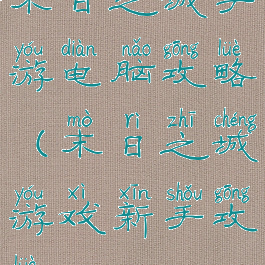 末日之城手
yóu diàn nǎo gōng lüè
游电脑攻略
mò rì zhī chéng
(末日之城
yóu xì xīn shǒu gōng
游戏新手攻
lüè